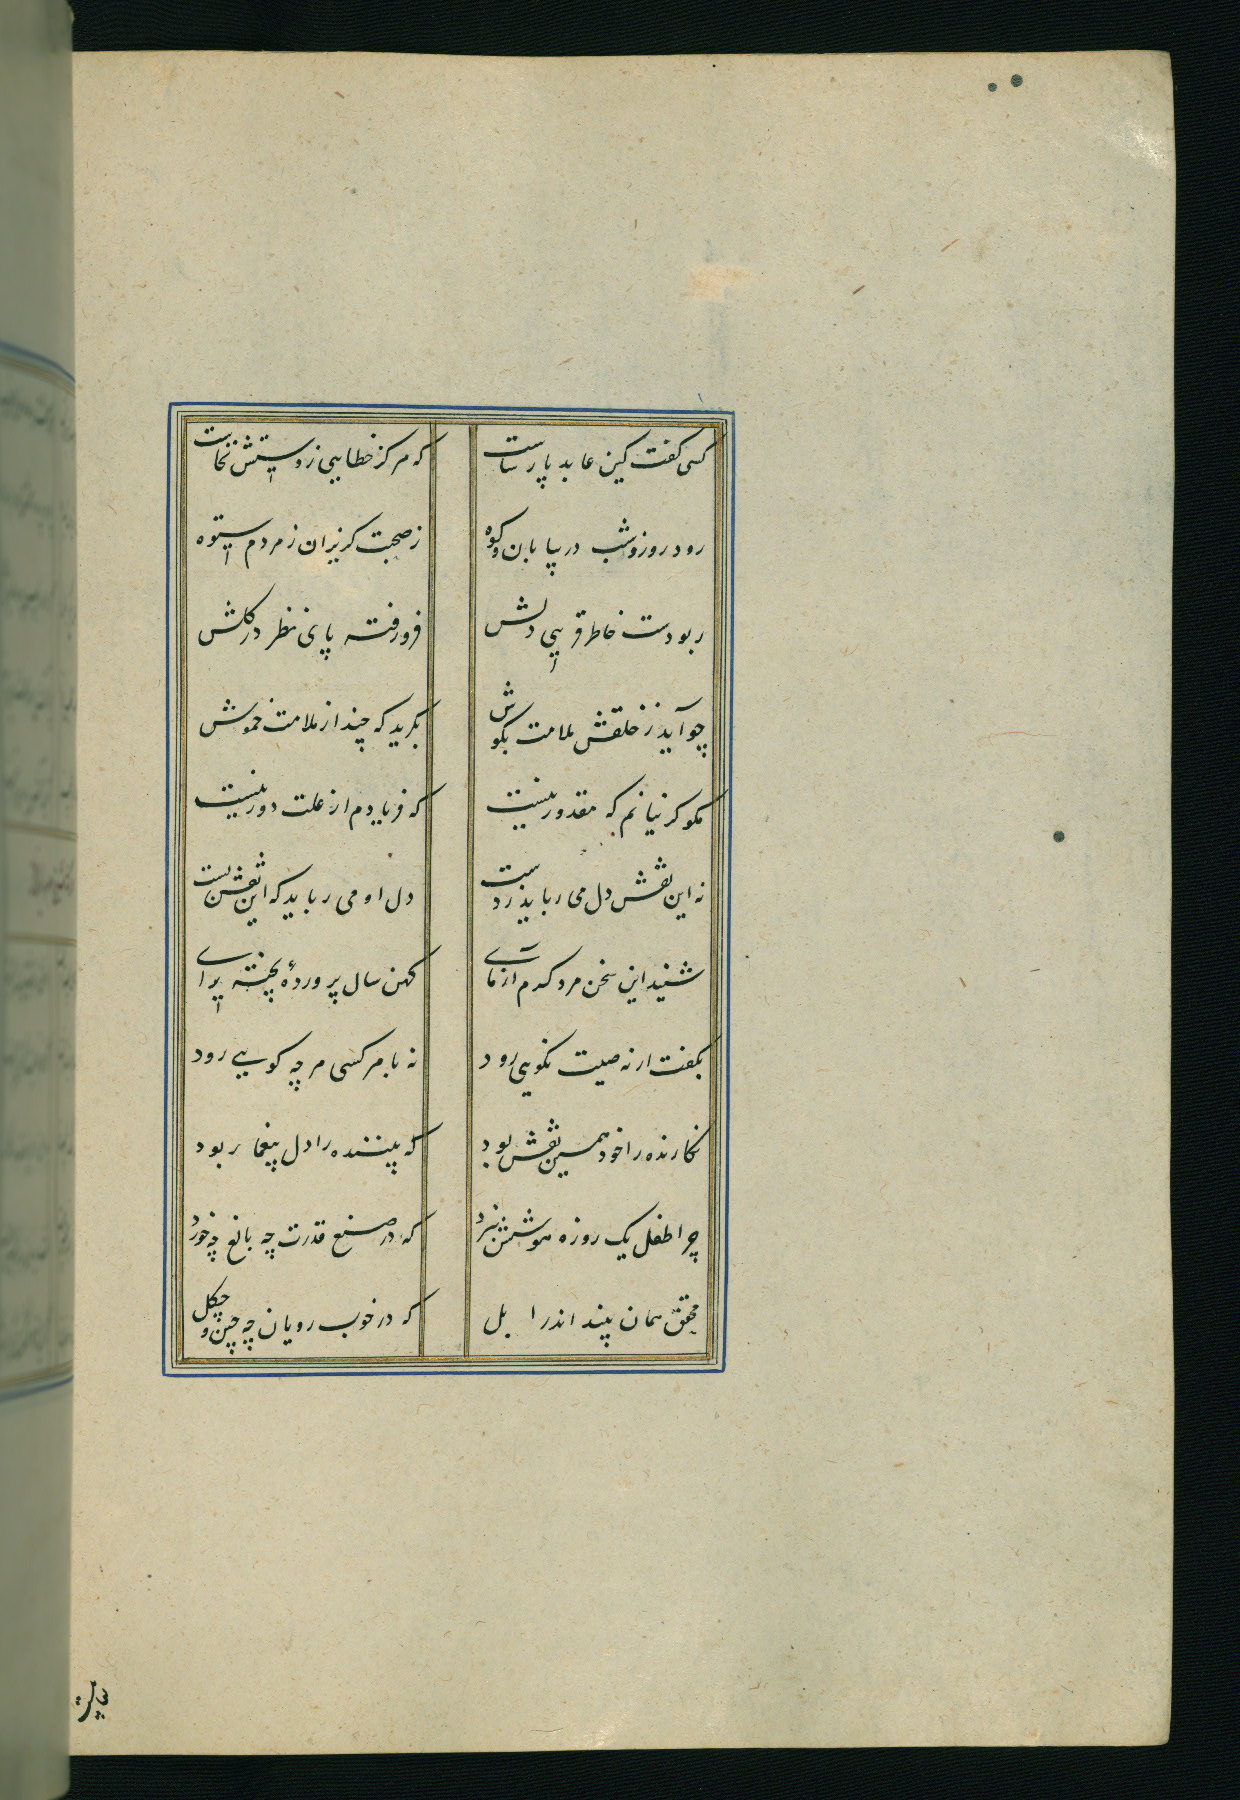 کسی گفت کین عابد پارساست که هرگز خطایی ز دستش نخاست
رود روز و شب در بیابان و کوه ز صحبت گریزان ز مردم ستوه
ربودست خاطر فریبی دلش فرو رفته پای نظر در گلش
چو آید ز خلقش ملامت بگوش بگرید که چند از ملامت خموش
مگو گر بنالم که مقدور نیست که فریادم از علت دور نیست
نه این نقش دل می رباید ز دست دل او می رباید که این نقش بست
شنید این سخن مرد کرم ازمای کهن سال پروردهٔ پخته رای
بگفت ار نه صیت نکویی رود نه با هر کسی هر چه گویی رود
نگارنده را خود همین نقش بود که بیننده را دل بیغما ربود
چرا طفل یک روزه هوشش نبرد که در صنع قدرت چه بالغ چه خورد
محقق همان بیند اندر ابل که در خوب رویان چه چین و چگل